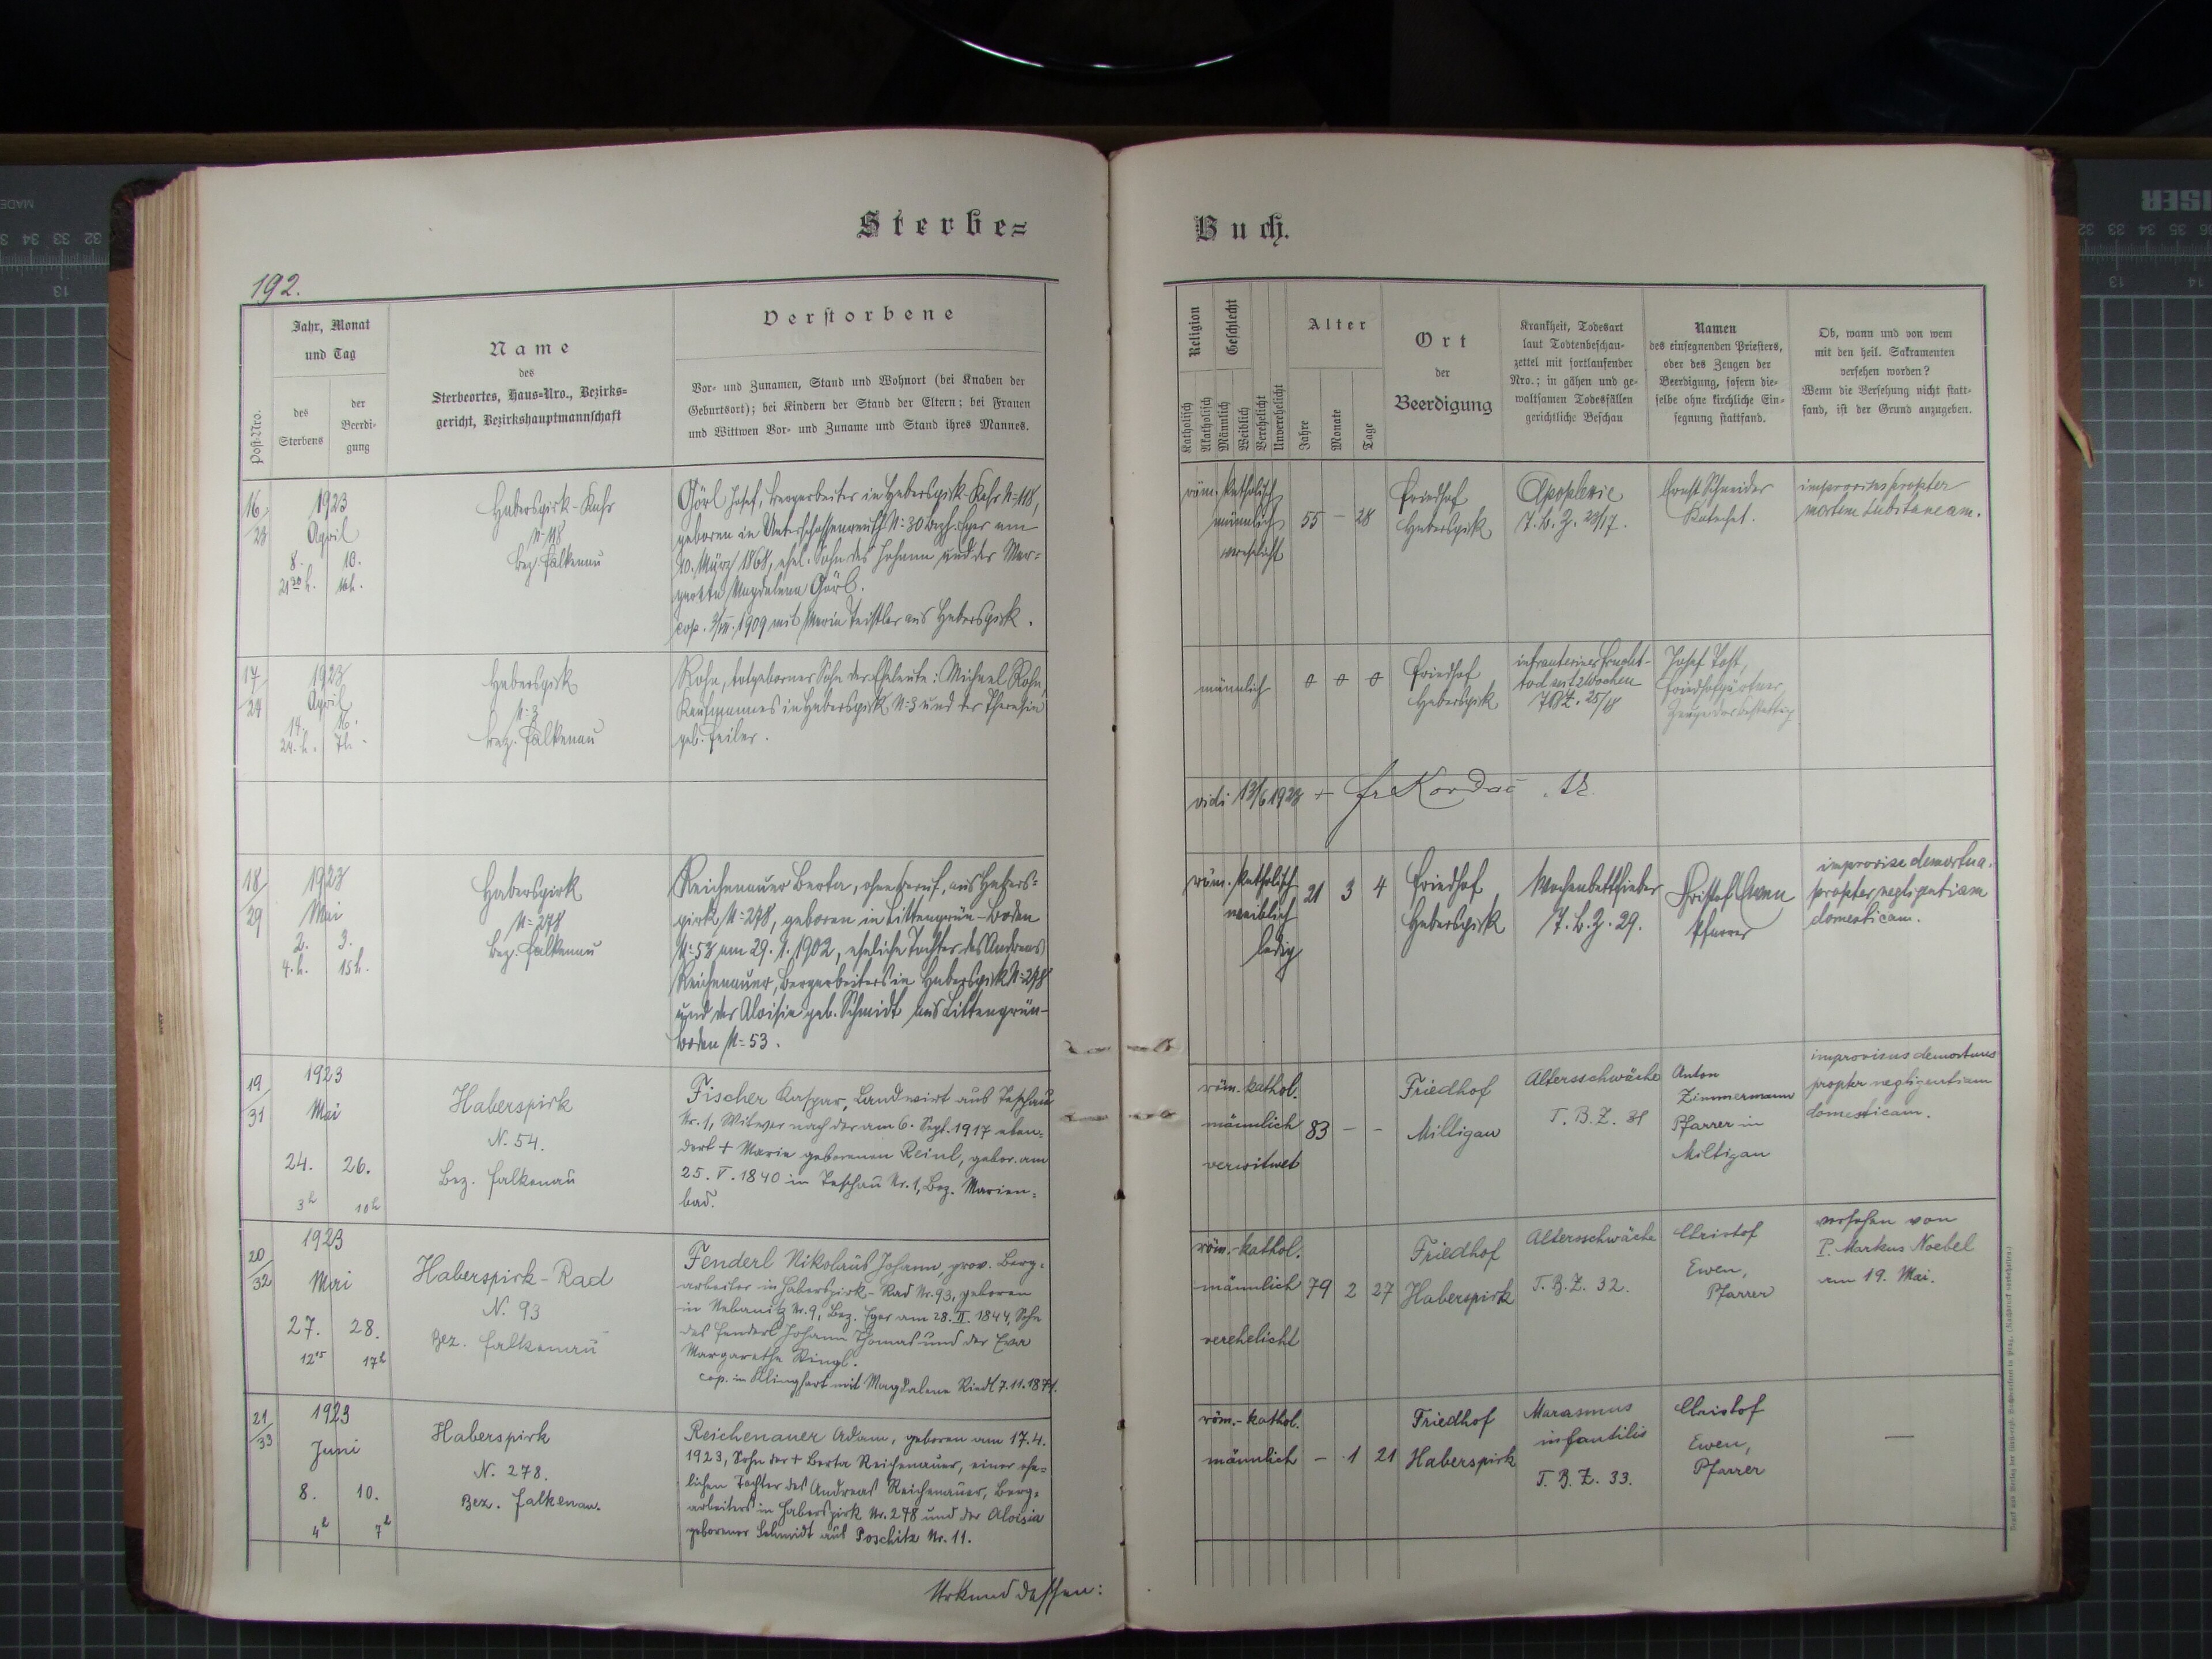 Sterbe=
Buch.
192.
Post-Nro.
Jahr, Monat
und Tag
des
Sterbens
der
Beerdi-
gung
Name
des
Sterbeortes, Haus=Nro., Bezirks=
gericht, Bezirkshauptmannschaft
Verstorbene
Vor- und Zunamen, Stand und Wohnort (bei Knaben der
Geburtsort); bei Kindern der Stand der Eltern; bei Frauen
und Wittwen Vor- und Zuname und Stand ihres Mannes.
Religion
Katholisch
Akatholisch
Geschlecht
Männlich
Weiblich
Verehelicht
Unverehelicht
Alter
Jahre
Monate
Tage
Ort
der
Beerdigung
Krankheit, Todesart
laut Todtenbeschau-
zettel mit fortlaufender
Nro.; in gähen und ge-
waltsamen Todesfällen
gerichtliche Beschau
Namen
des einsegnenden Priesters,
oder des Zeugen der
Beerdigung, sofern die-
selbe ohne kirchliche Ein-
segnung stattfand.
Ob, wann und von wem
mit den heil. Sakramenten
versehen worden?
Wenn die Versehung nicht statt-
fand, ist der Grund anzugeben.
16/23
1923
April
8. 10.
21 30 h. 16h.
Haberspirk-Rahr
N=118
Bez. Falkenau
Görl Josef, Bergarbeiter in Haberspirk-Rahr N=118,
geboren in N=30 Bezh. Eger am
10. März 1868, ehel. Sohn des Johann und der Mar=
garetha Magdalena Görl.
cop. 1909 mit Maria Teistler aus Haberspirk.
röm. katholisch
männlich
verehelicht
55 — 28
Friedhof
Haberspirk
Apoplexie
T. B. Z. 23/17.
Ernst Schneider
Katechet.
improvius propter
mortem subitaneam.
17/24
1923
April
14. 16.
24. h. 7h.
Haberspirk
N=3
Bez. Falkenau
Rohn, totgeborner Sohn der Eheleute: Michael Rohn,
Kaufmannes in Haberspirk N=3 und der Theresia
geb. Feiler.
männlich
0 0 0
Friedhof
Haberspirk
intrauteriner Frucht-
tod seit 2 Wochen
TBZ. 25/18
Josef Tost,
Friedhofgärtner
Zeuge der Bestattung
vidi 13/6 1923 + fr Kordač
18/29
1923
Mai
2. 3.
4. h. 15h.
Haberspirk
N=278
Bez. Falkenau
Reichenauer Berta, ohne Beruf, aus Habers=
pirk N=278, geboren in Littengrün-Boden
N=53 am 29. 1. 1902, eheliche Tochter des Andreas
Reichenauer, Bergarbeiters in Haberspirk N=278
und der Aloisia geb. Schmidt aus Littengrün-
Boden N=53.
röm. katholisch
weiblich
ledig
21 3 4
Friedhof
Haberspirk
Wochenbettfieber
T. B. Z. 29.
Christof Ewen
Pfarrer
improvise demortua
propter negligentiam
domesticam.
19/31
1923
Mai
24. 26.
3h 10h
Haberspirk
N. 54.
Bez. Falkenau
Fischer Kaspar, Landwirt aus Teschau
Nr. 1, Witwer nach der am 6. Sept. 1917 eben=
dort + Marie geborenen Reinl, gebor. am
25. V. 1840 in Teschau Nr. 1, Bez. Marien=
bad.
röm. kathol.
männlich
verwitwet
83 — -
Friedhof
Milligau
Altersschwäche
T. B. Z. 31
Anton
Zimmermann
Pfarrer in
Miltigau
improvisus demortuus
propter negligentiam
domesticam.
20/32
1923
Mai
27. 28.
12 15 17h
Haberspirk-Rad
N. 93
Bez. Falkenau
Fenderl Nikolaus Johann, prov. Berg=
arbeiter in Haberspirk-Rad Nr. 93, geboren
in Nebanitz Nr. 9, Bez. Eger am 28. II. 1844, Sohn
des Fenderl Johann Thomas und der Eva
Margaretha Ringl.
cop. in Klinghart mit Magdalena Riedl 7. 11. 1871.
röm.-kathol.
männlich
verehelicht
79 2 27
Friedhof
Haberspirk
Altersschwäche
T. B. Z. 32.
Christof
Ewen,
Pfarrer
versehen von
P. Markus Noebel
am 19. Mai.
21/33
1923
Juni
8. 10.
4h 7h
Haberspirk
N. 278.
Bez. Falkenau.
Reichenauer Adam, geboren am 17. 4.
1923, Sohn der + Berta Reichenauer, einer ehe=
lichen Tochter des Andreas Reichenauer, Berg=
arbeiters in Haberspirk Nr. 278 und der Aloisia
geborener Schmidt aus Poschitz Nr. 11.
röm.-kathol.
männlich
— 1 21
Friedhof
Haberspirk
Marasmus
infantilis
T. B. Z. 33.
Christof
Ewen,
Pfarrer
—
Urkund dessen: